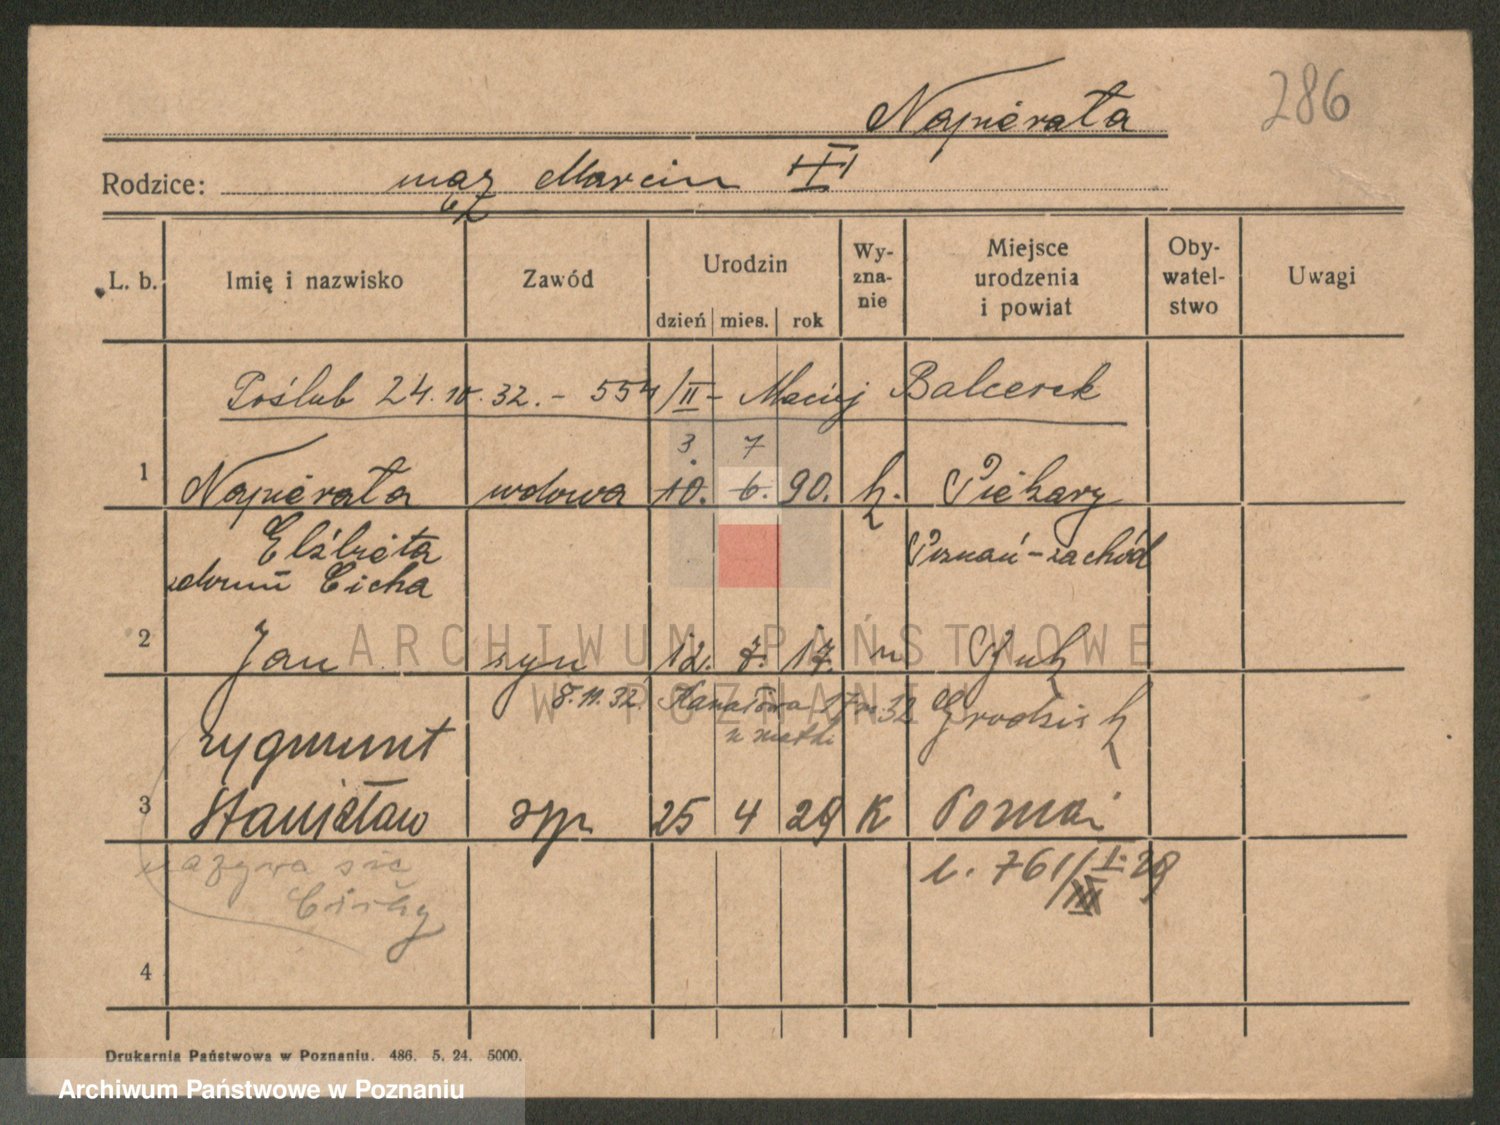 286
Napierała
Rodzice: mąż Marcin
L. b. Imię i nazwisko Zawód Urodzin dzień mies. rok Wy-zna-nie Miejsce urodzenia i powiat Oby-watel-stwo Uwagi
Poślub 24.10.32. - 554/II - Maciej Balcerek
3. 7
1 Napierała wdowa 10. 6. 90. k. Piekary
Elżbieta Poznań-zachód
zdomu Cicha
2 Jan syn 12. 7. 17. "
ARCHIWUM PAŃSTWOWE
W POZNANIU
8.11.32. Kanałowa 17 Grodzisk
u matki
Zygmunt
3 Stanisław syn 25 4 29 K Poznań
nazywa się l. 761/I. 29
Cichy III
4
Drukarnia Państwowa w Poznaniu. 486. 5. 24. 5000.
Archiwum Państwowe w Poznaniu